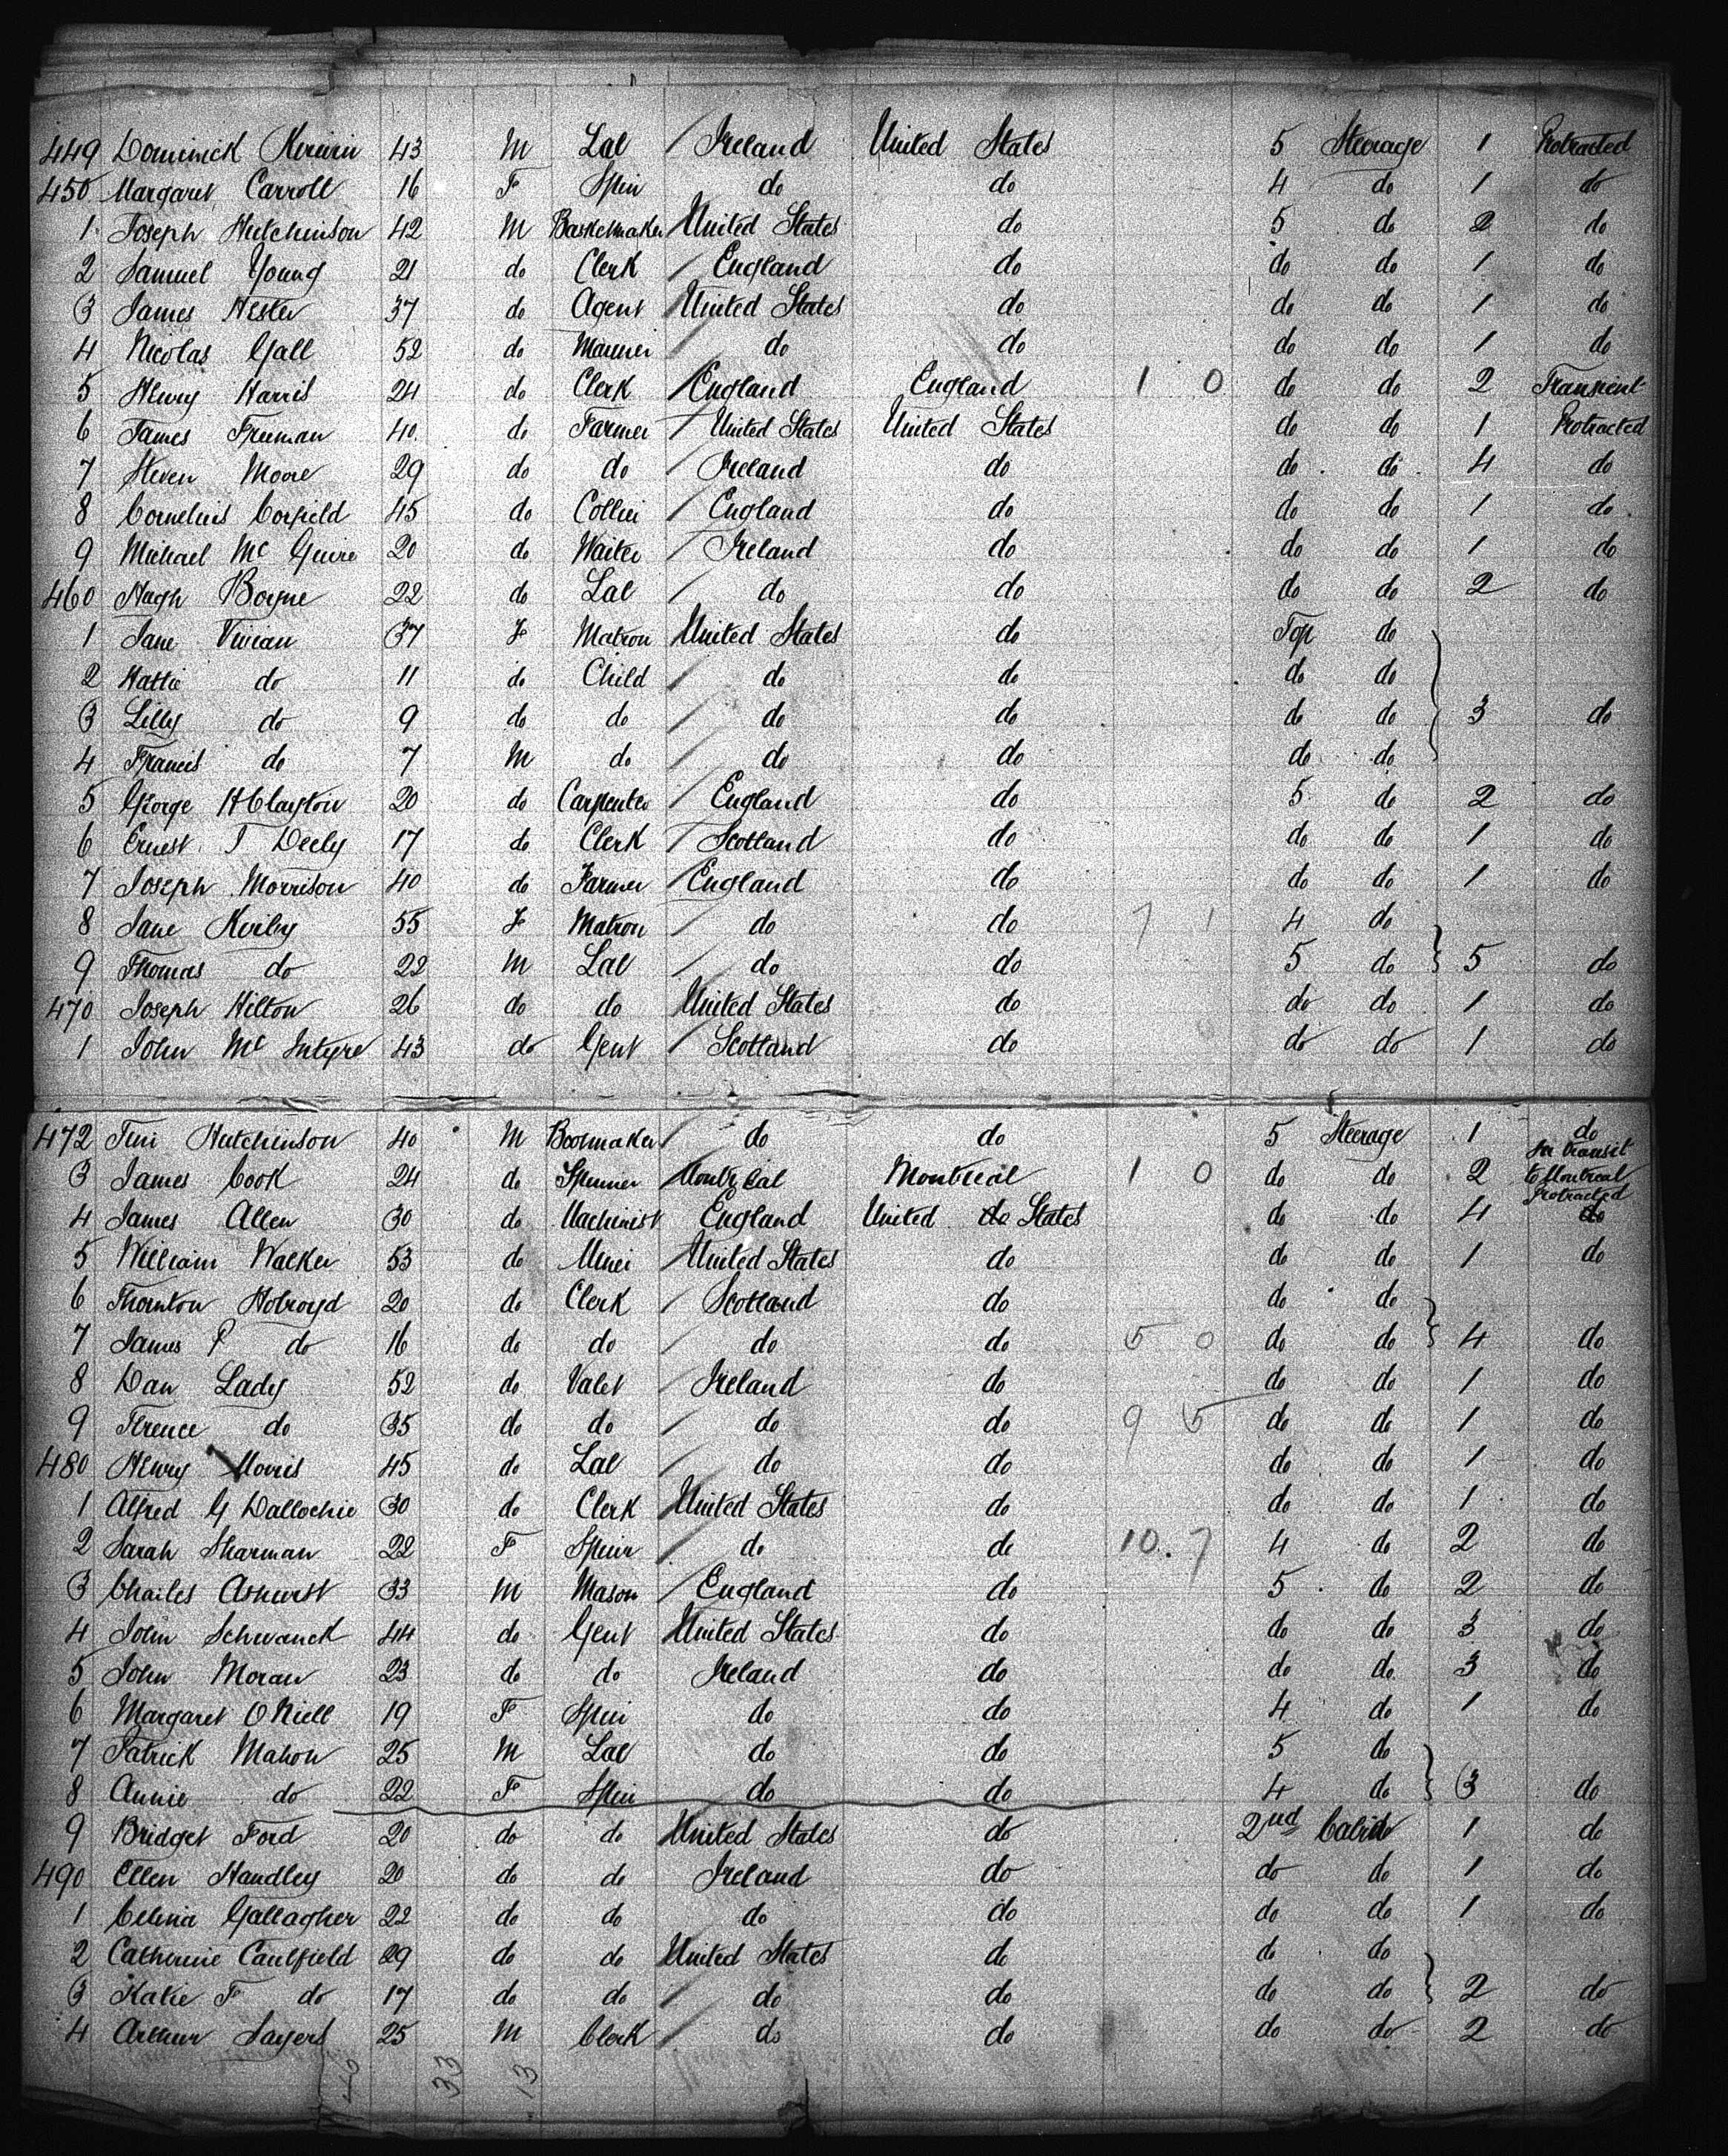 449 Dominick Kirwin 43 M Lab Ireland United States 5 Steerage 1 Protracted
450 Margaret Carroll 16 F Spin do do 4 do 1 do
1 Joseph Hutchinson 42 M Basketmaker United States do 5 do 2 do
2 Samuel Young 21 do Clerk England do do do 1 do
3 James Hester 37 do Agent United States do do do 1 do
4 Nicolas Gall 52 do Mariner do do do do 1 do
5 Henry Harris 24 do Clerk England England 1 0 do do 2 Transient
6 James Freeman 40 do Farmer United States United States do do 1 Protracted
7 Steven Moore 29 do do Ireland do do do 4 do
8 Cornelius Corfield 45 do Collier England do do do 1 do
9 Michael Mc Guire 20 do Waiter Ireland do do do 1 do
460 Hugh Boyne 22 do Lab do do do do 2 do
1 Jane Vivian 37 F Matron United States do Top do
2 Hattie do 11 do Child do do do do
3 Lilly do 9 do do do do do do 3 do
4 Francis do 7 M do do do do do
5 George H Clayton 20 do Carpenter England do 5 do 2 do
6 Ernest T Deely 17 do Clerk Scotland do do do 1 do
7 Joseph Morrison 40 do Farmer England do do do 1 do
8 Jane Kerby 55 F Matron do do 7 1 4 do
9 Thomas do 22 M Lab do do 5 do 5 do
470 Joseph Hilton 26 do do United States do do do 1 do
1 John Mc Intyre 43 do Gent Scotland do do do 1 do
472 Tim Hutchinson 40 M Bootmaker do do 5 Steerage 1 do
3 James Cook 24 do Spinner Montreal Montreal 1 0 do do 2 In transit to Montreal
4 James Allen 30 do Machinist England United do States do do 4 protracted do
5 William Walker 53 do Miner United States do do do 1 do
6 Thornton Holroyd 20 do Clerk Scotland do do do
7 James P do 16 do do do do 5 0 do do 4 do
8 Dan Lady 52 do Valet Ireland do do do 1 do
9 Terence do 35 do do do do 9 5 do do 1 do
480 Henry Morris 45 do Lab do do do do 1 do
1 Alfred G Dallochie 30 do Clerk United States do do do 1 do
2 Sarah Sharman 22 F Spin do do 10. 7 4 do 2 do
3 Charles Ashurst 33 M Mason England do 5 do 2 do
4 John Schwanck 44 do Gent United States do do do 3 do
5 John Moran 23 do do Ireland do do do 3 do
6 Margaret O Niell 19 F Spin do do 4 do 1 do
7 Patrick Mahon 25 M Lab do do 5 do
8 Annie do 22 F Spin do do 4 do 3 do
9 Bridget Ford 20 do do United States do 2nd Cabin 1 do
490 Ellen Handley 20 do do Ireland do do do 1 do
1 Celina Gallagher 22 do do do do do do 1 do
2 Catherine Caulfield 29 do do United States do do do
3 Katie F do 17 do do do do do do 2 do
4 Arthur Sayers 25 M Clerk do do do do 2 do
46 33 13